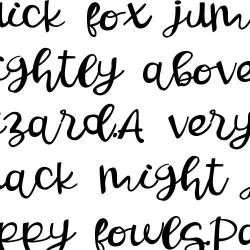 uick fox jum
ightly above
izard.A very
hack might j
ppy fowls.Pa